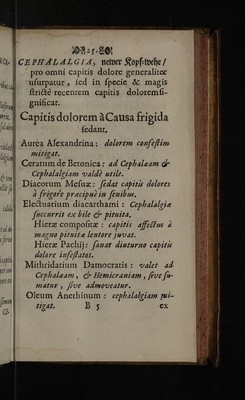 25.
CEPHALALGIA, newer Kopf-wehe/
pro omni capitis dolore generaliter
usurpatur, sed in specie & magis
strictè recentem capitis dolorem si-
gnificat.
Capitis dolorem à Causa frigida
sedant.
Aurea Alexandrina; dolorem confestim
mitigat.
Ceratum de Betonica: ad Cephalæam &
Cephalalgiam valdè utile.
Diacorum Mesuæ: sedat capitis dolores
à frigore præcipuè in senibus.
Electuarium diacarthami: Cephalalgiæ
succurrit ex bile & pituita.
Hieræ compositæ: capitis affectus à
magno pituitæ lentore juvat.
Hieræ Pachij: sanat diuturno capitis
dolore infestatos.
Mithridatium Damocratis: valet ad
Cephalæam, & Hemicraniam, sive su-
matur, sive admoveatur.
Oleum Anethinum: cephalalgiam mi-
tigat. B 5 ex